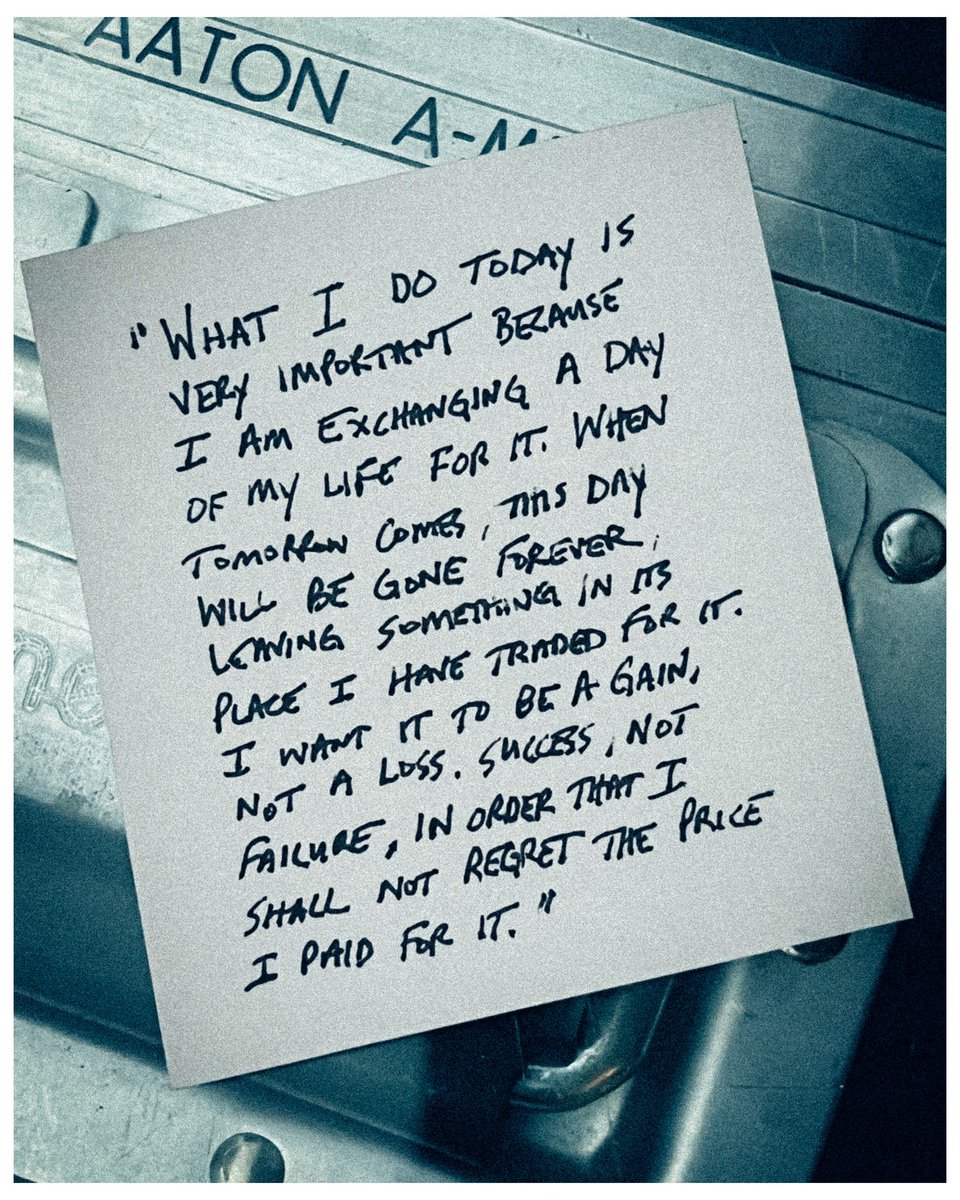 AATON A-M
"WHAT I DO TODAY IS
VERY IMPORTANT BECAUSE
I AM EXCHANGING A DAY
OF MY LIFE FOR IT. WHEN
TOMORROW COMES, THIS DAY
WILL BE GONE FOREVER,
LEAVING SOMETHING IN ITS
PLACE I HAVE TRADED FOR IT.
I WANT IT TO BE A GAIN,
NOT A LOSS. SUCCESS, NOT
FAILURE, IN ORDER THAT I
SHALL NOT REGRET THE PRICE
I PAID FOR IT."